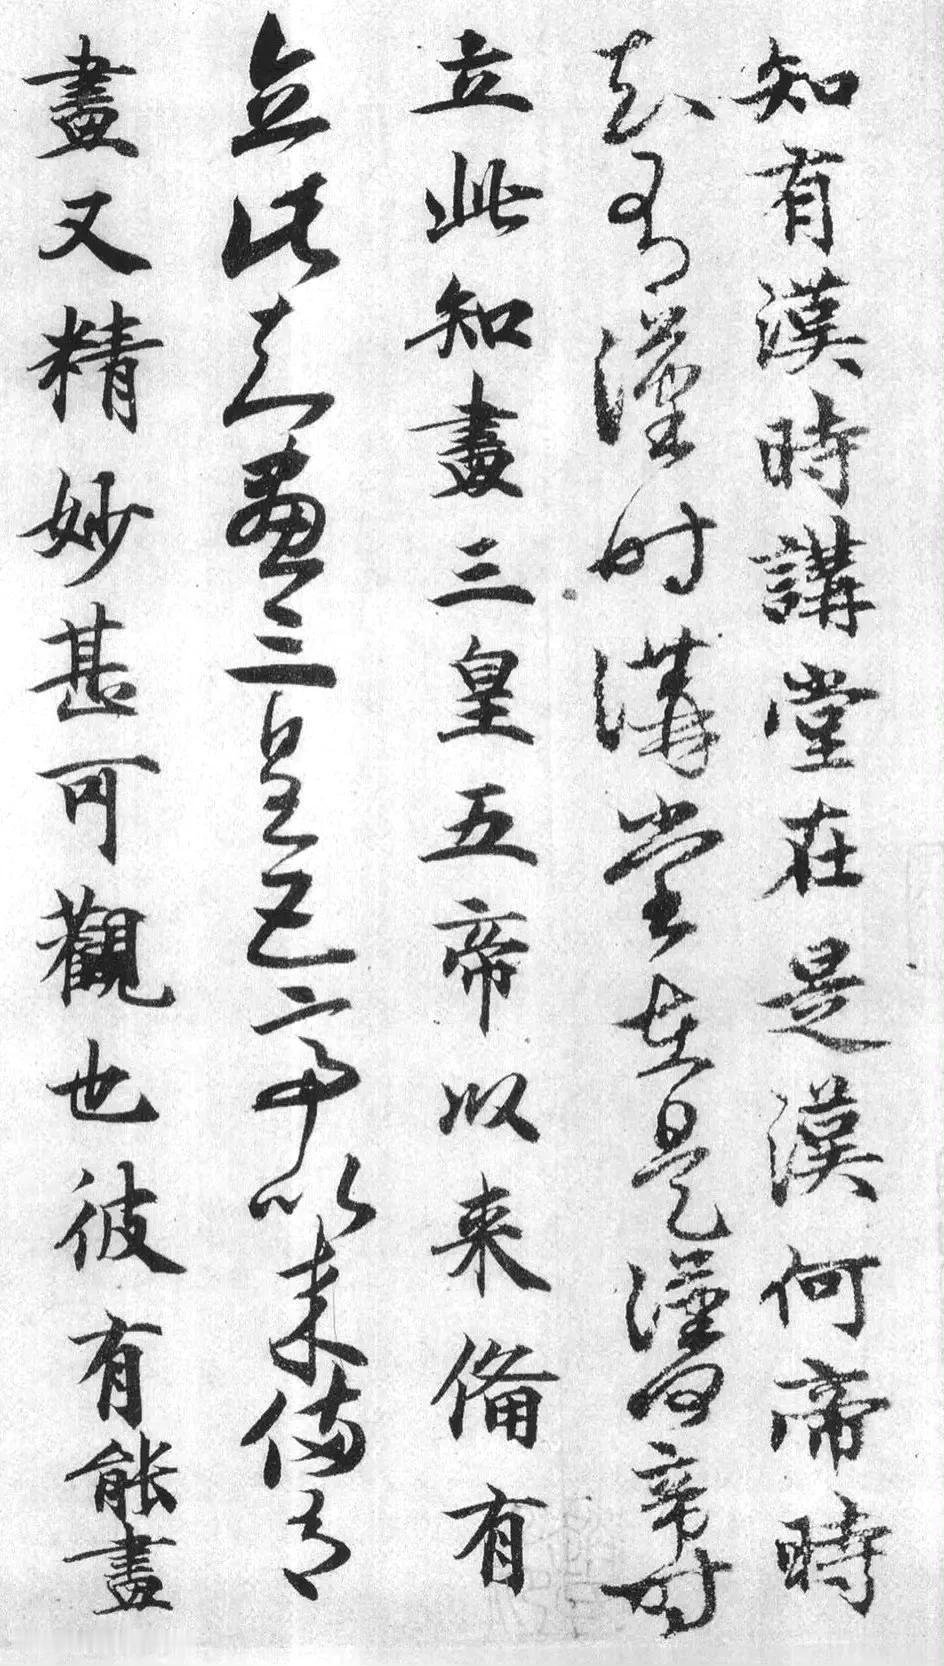 知有漢時講堂在是漢何帝時
知有漢時講堂在是漢何帝時
立此知畫三皇五帝以来備有
立此知畫三皇五帝以来備有
畫又精妙甚可觀也彼有能畫